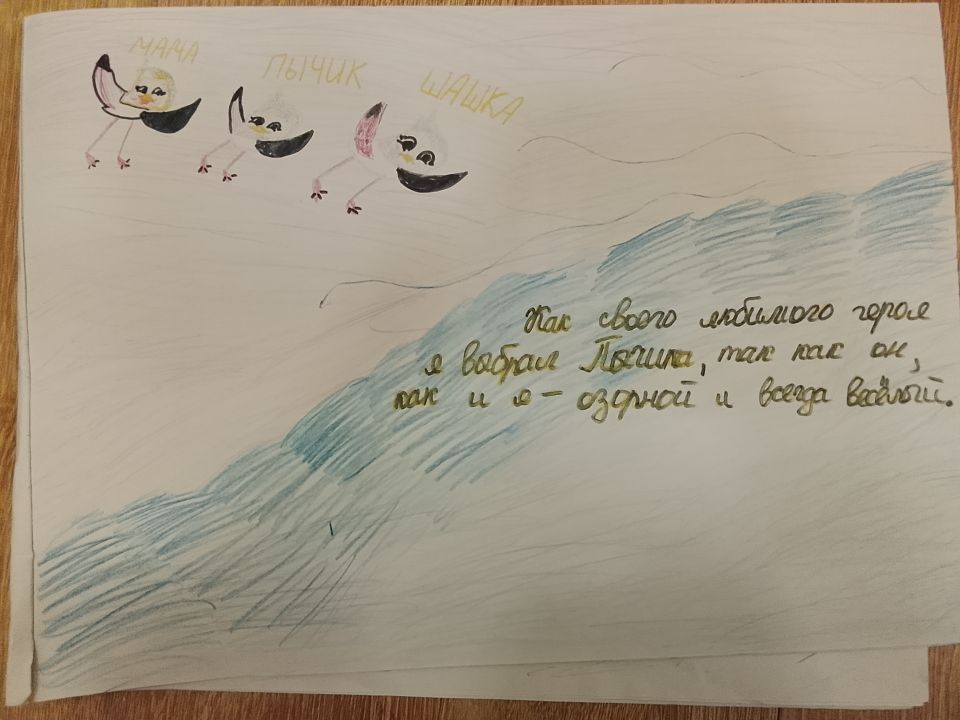 МАМА
ПЫЧИК
ШАШКА
Как своего любимого героя
я выбрал Пычика, так как он,
как и я – озорной и всегда весёлый.